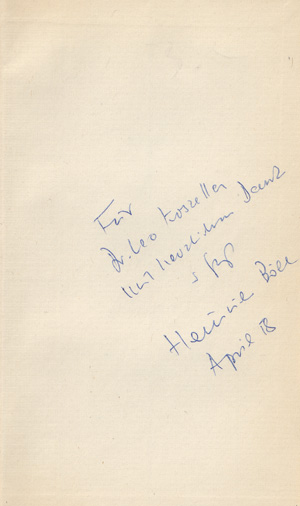 Für
Dr. Leo Koszella
mit herzlichem Dank
u Gruß
Heinrich Böll
April 78